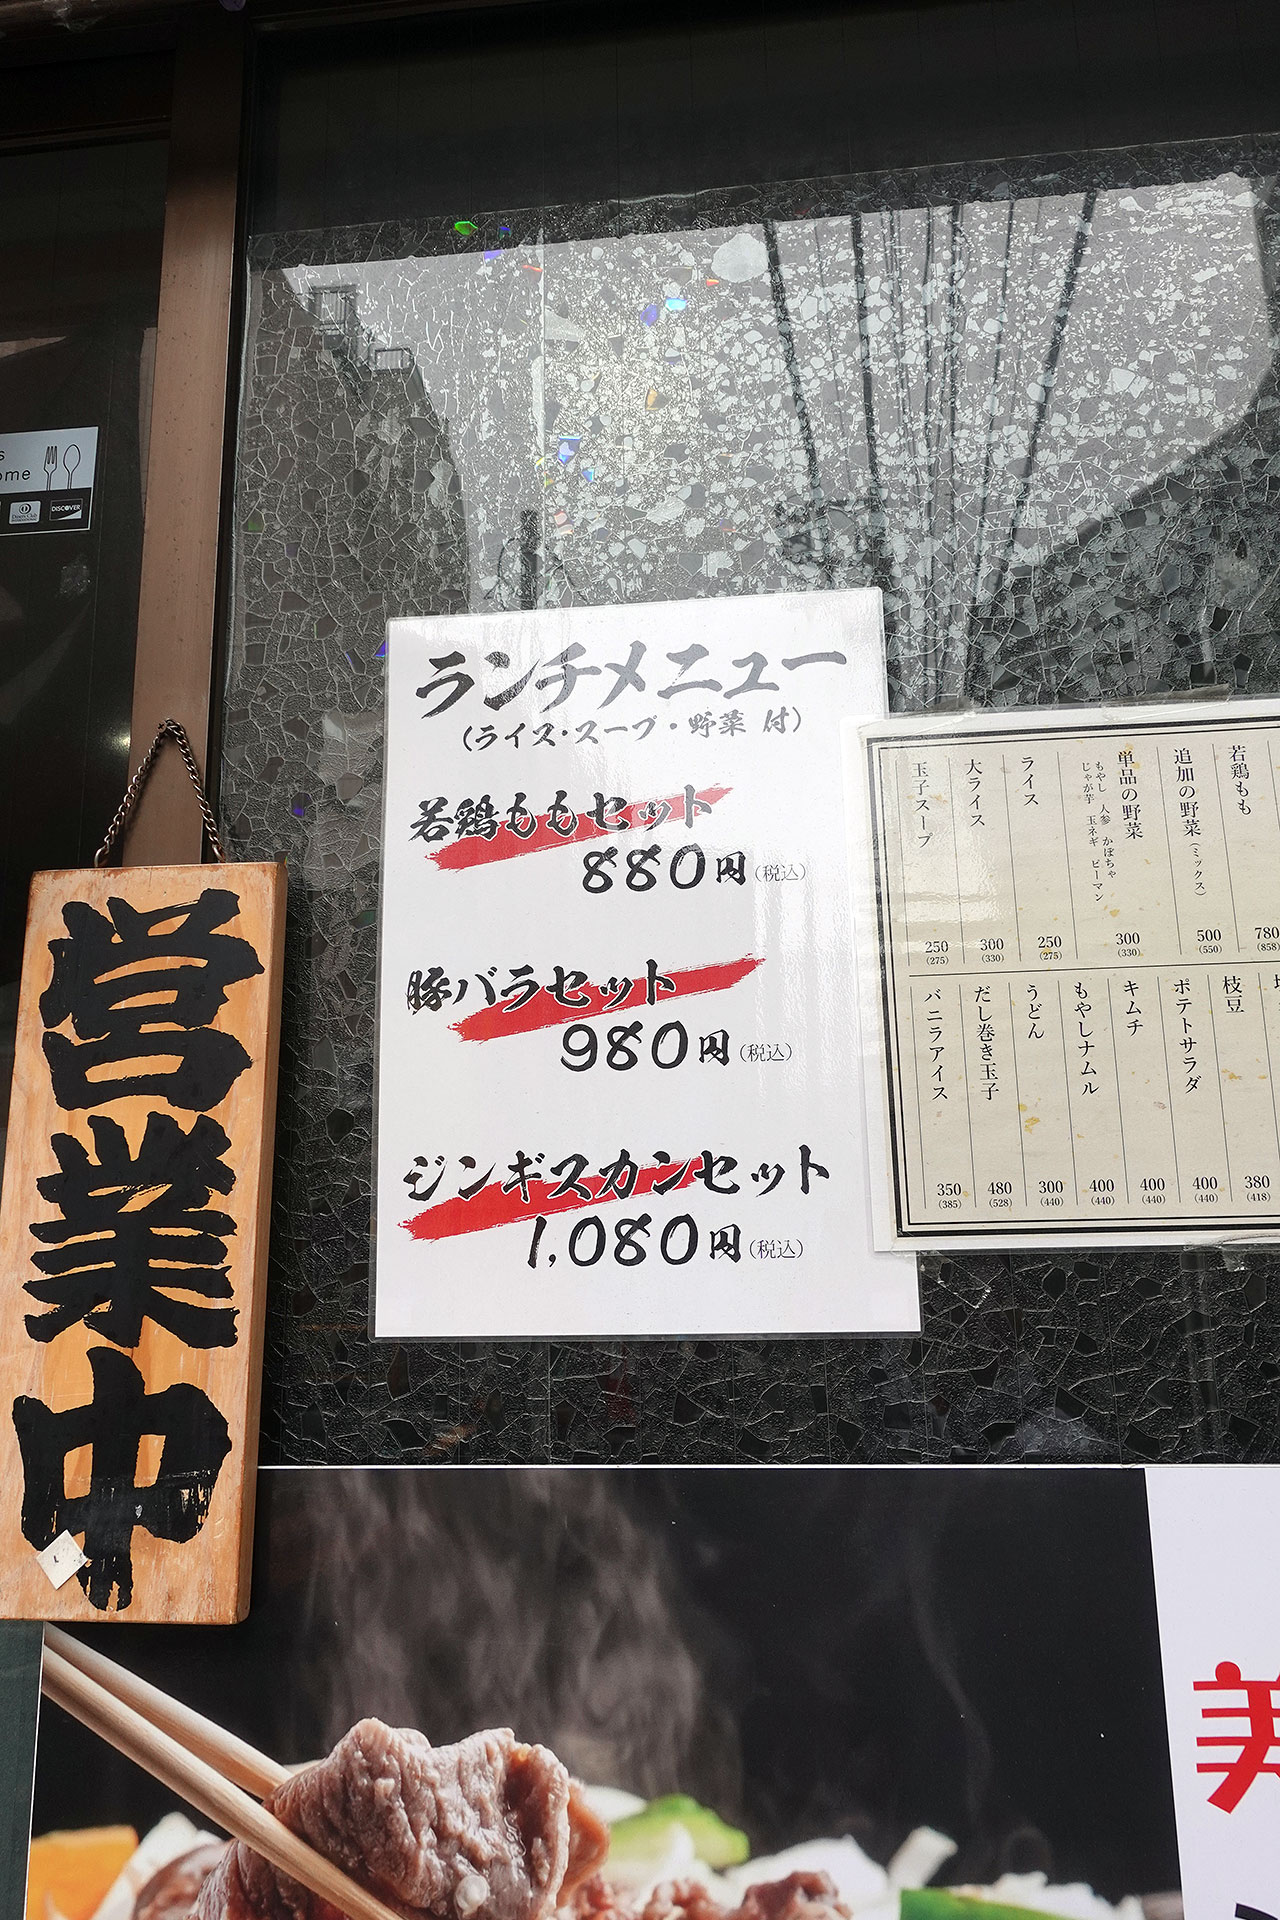 s
ome
Diners Club
DISCOVER
営業中
ランチメニュー
(ライス・スープ・野菜 付)
若鶏ももセット
880円(税込)
豚バラセット
980円(税込)
ジンギスカンセット
1,080円(税込)
若鶏もも 780 (858)
追加の野菜(ミックス) 500 (550)
単品の野菜 300 (330)
もやし 人参 かぼちゃ
じゃが芋 玉ネギ ピーマン
ライス 250 (275)
大ライス 300 (330)
玉子スープ 250 (275)
枝豆 380 (418)
ポテトサラダ 400 (440)
キムチ 400 (440)
もやしナムル 400 (440)
うどん 300 (440)
だし巻き玉子 480 (528)
バニラアイス 350 (385)
美